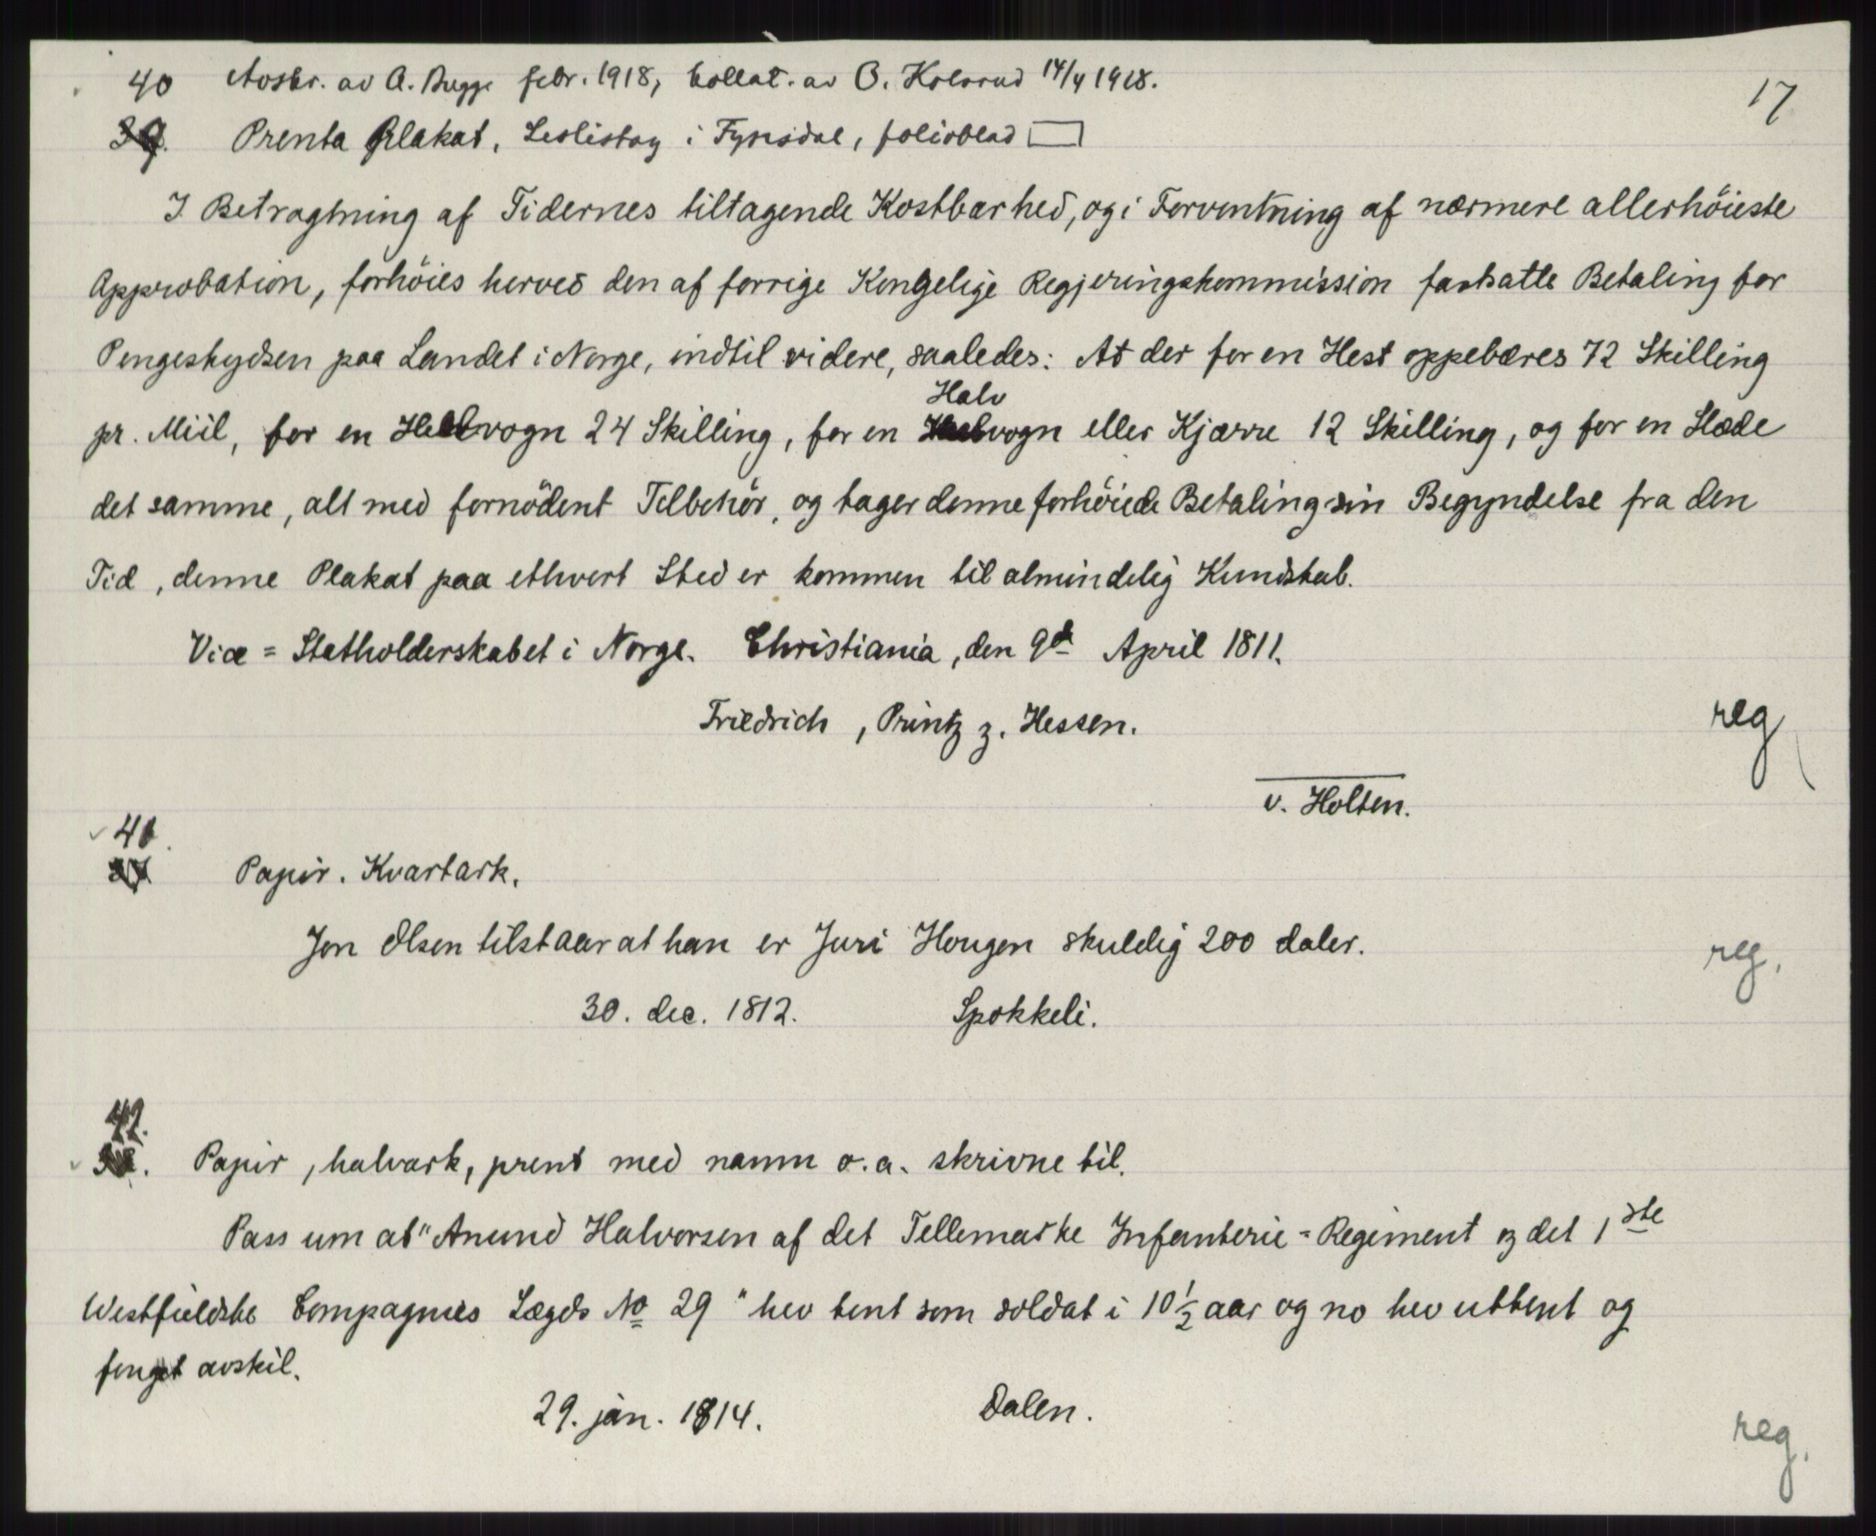 40 Avskr. av A. Bugge febr. 1918, collat. av O. Kolsrud 14/4 1918.
17
39. Prenta Plakat, Leslistog i Fyrisdal, folioblad
I Betragtning af Tidernes tiltagende Kostbarhed, og i Forventning af nærmere allerhöieste
Approbation, forhöies herved den af forrige Kongelige Regjeringskommission fastsatte Betaling for
Pengeskydsen paa Landet i Norge, indtil videre, saaledes: At der for en Hest oppebæres 72 Skilling
Halv
pr. Miil, for en Helvogn 24 Skilling, for en vogn eller Kjærre 12 Skilling, og for en Slæde
det samme, alt med fornödent Tilbehör, og tager denne forhöiede Betaling sin Begyndelse fra den
Tid, denne Plakat paa ethvert Sted er kommen til almindelig Kundskab.
Vice = Statholderskabet i Norge. Christiania, den 9d April 1811.
Friedrich, Printz z. Hessen.
reg
v. Holten.
41.
37. Papir. Kvartark.
Jon Olsen tilstaar at han er Juri Hougen skuldig 200 daler.
reg.
30. dec. 1812. Spokkeli.
42.
38. Papir, halvark, prent med namn o.a. skrivne til.
Pass um at "Anund Halvorsen af det Tellemarke Infanterie = Regiment og det 1ste
Westfieldske Compagnies Lægds No 29" hev tent som soldat i 10 1/2 aar og no hev uttent og
fenget avskil.
29. jan. 1814. Dalen.
reg.